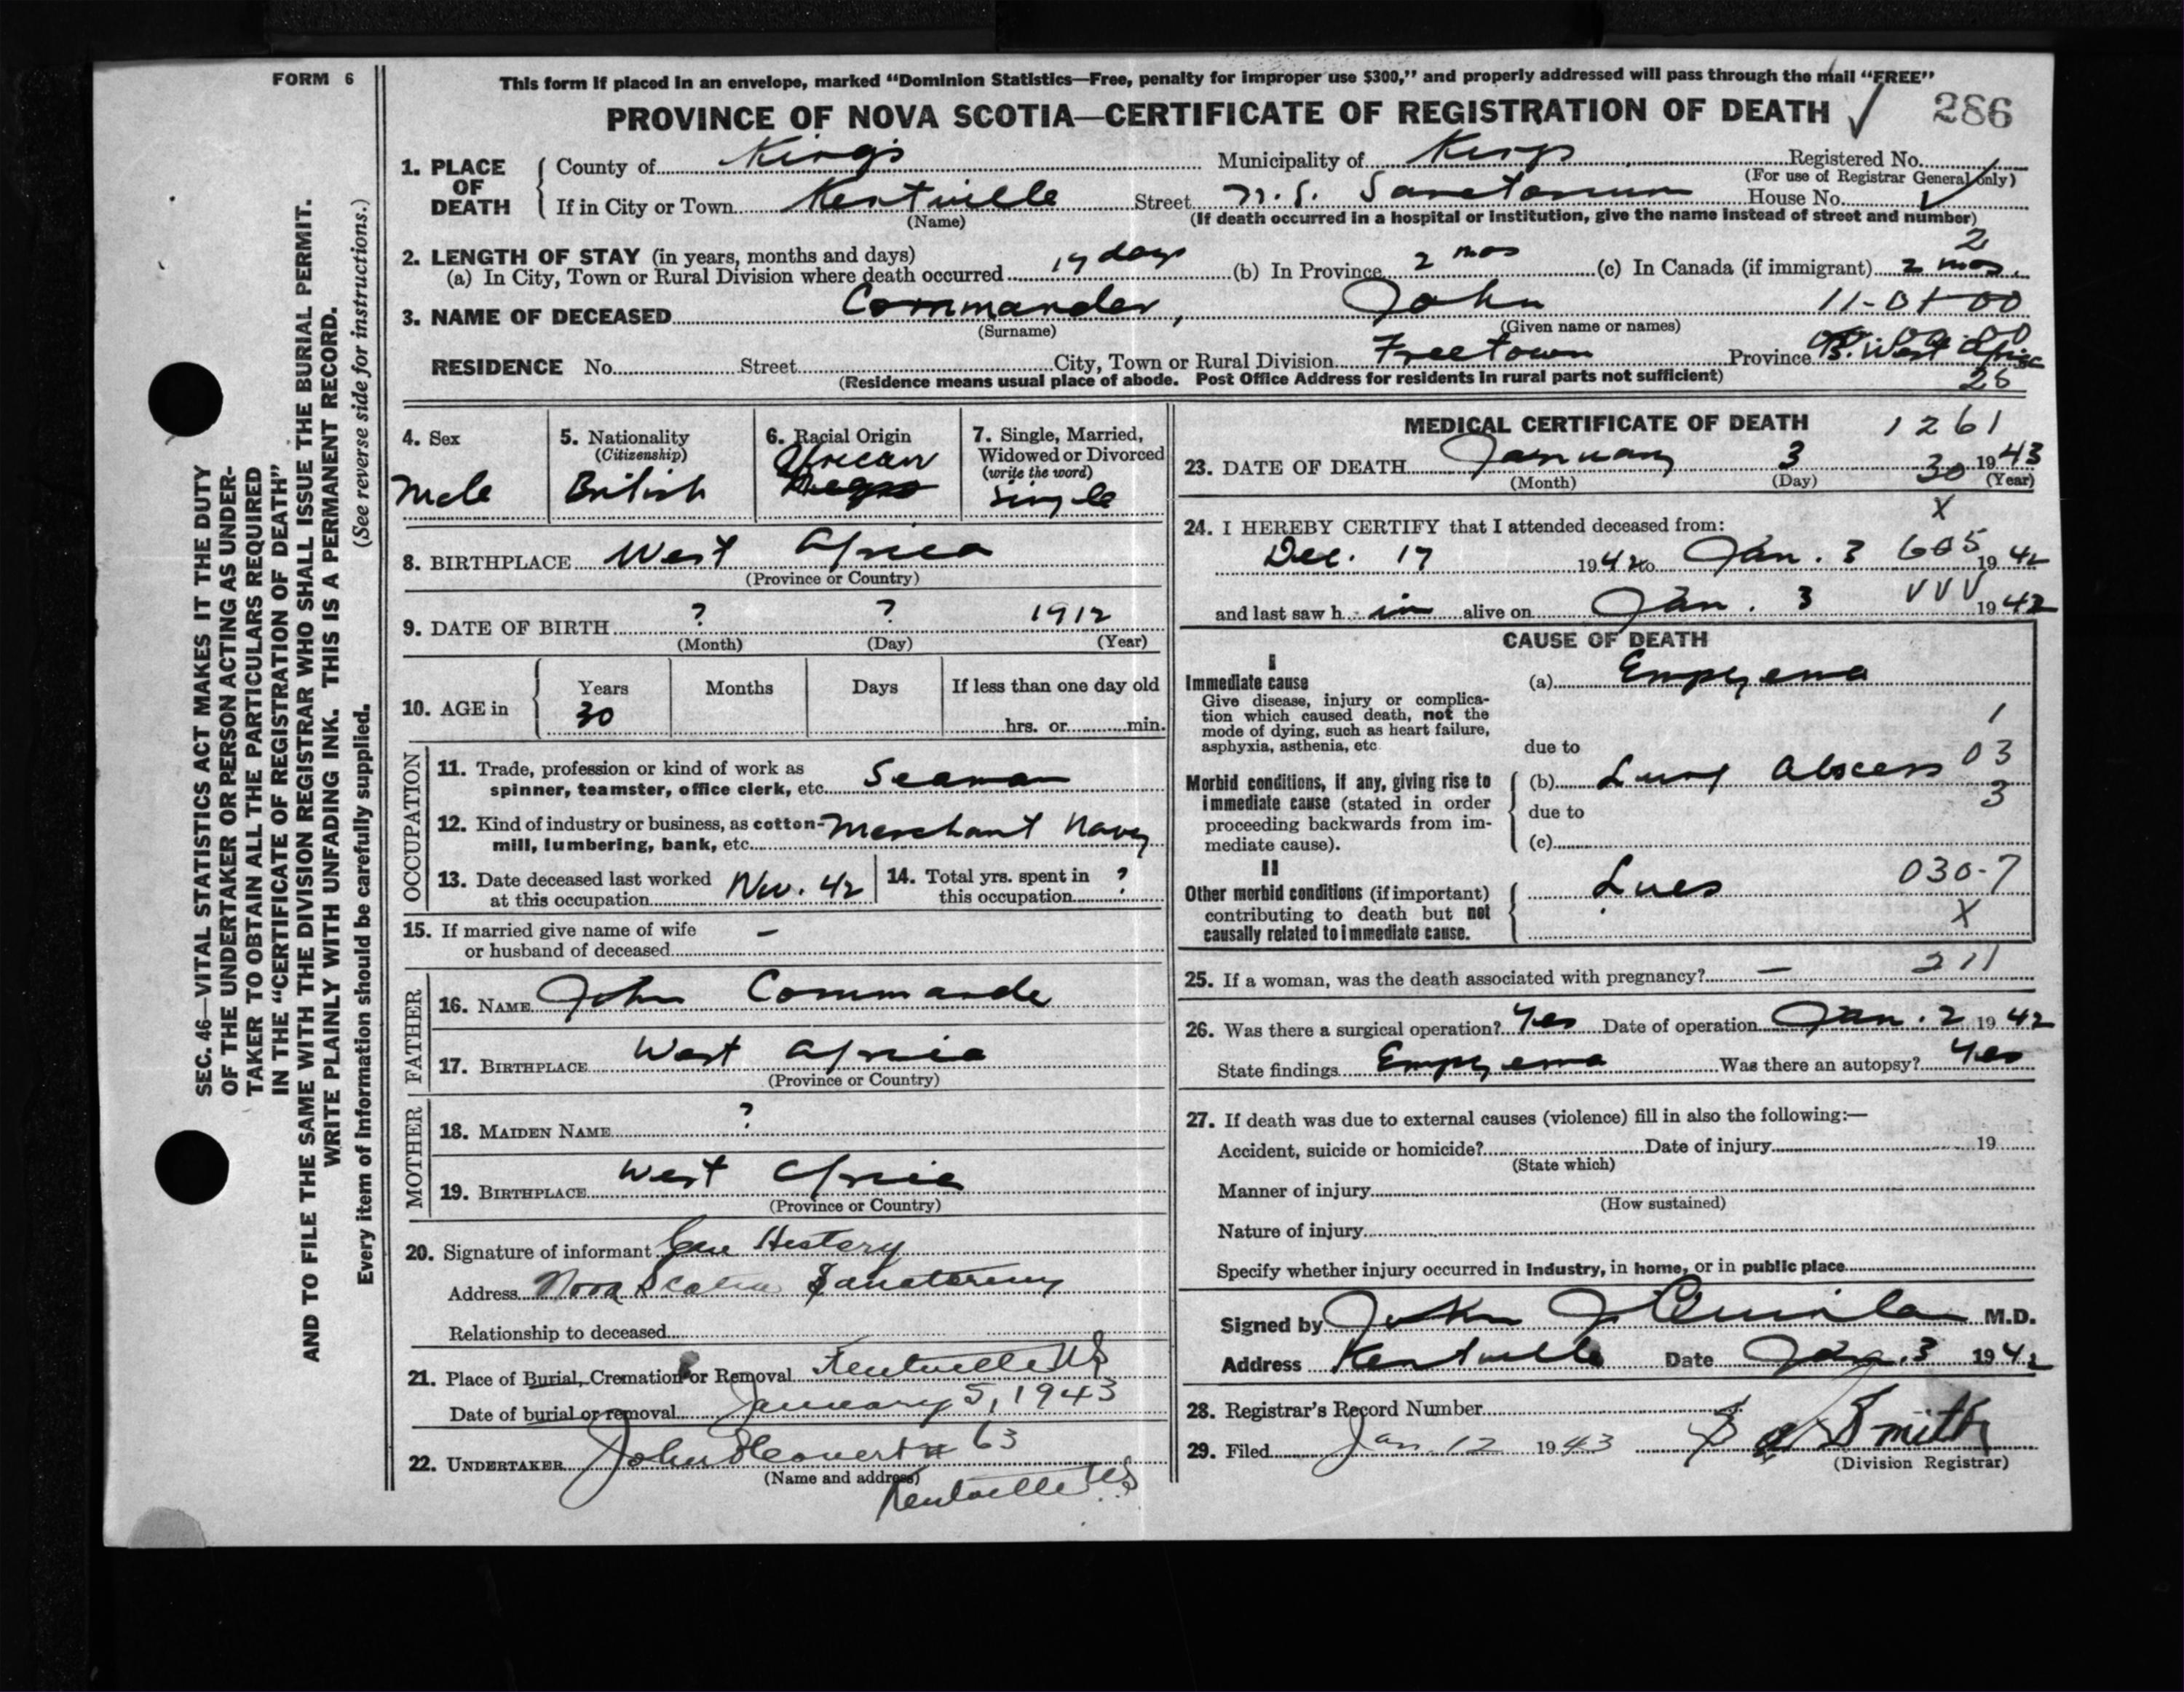 FORM 6
This form if placed in an envelope, marked "Dominion Statistics—Free, penalty for improper use $300," and properly addressed will pass through the mail "FREE"
PROVINCE OF NOVA SCOTIA—CERTIFICATE OF REGISTRATION OF DEATH ✓ 286
1. PLACE OF DEATH
County of Kings Municipality of Kings Registered No.
(For use of Registrar General only)
If in City or Town Kentville Street N.S. Sanatorium House No.
(Name) (If death occurred in a hospital or institution, give the name instead of street and number)
2. LENGTH OF STAY (in years, months and days) 2
(a) In City, Town or Rural Division where death occurred 17 days (b) In Province 2 mos (c) In Canada (if immigrant) 2 mos.
3. NAME OF DECEASED Commander, John 11-01-00
(Surname) (Given name or names)
RESIDENCE No. Street City, Town or Rural Division Freetown Province B. West Africa
(Residence means usual place of abode. Post Office Address for residents in rural parts not sufficient) 26
4. Sex
Male
5. Nationality
(Citizenship)
British
6. Racial Origin
African
Negro
7. Single, Married, Widowed or Divorced
(write the word)
Single
8. BIRTHPLACE West Africa
(Province or Country)
9. DATE OF BIRTH ? ? 1912
(Month) (Day) (Year)
10. AGE in Years Months Days If less than one day old
30 hrs. or min.
OCCUPATION
11. Trade, profession or kind of work as
spinner, teamster, office clerk, etc. Seaman
12. Kind of industry or business, as cotton-
mill, lumbering, bank, etc. Merchant Navy
13. Date deceased last worked
at this occupation Nov. 42
14. Total yrs. spent in
this occupation ?
15. If married give name of wife
or husband of deceased —
FATHER
16. NAME John Commande
17. BIRTHPLACE West Africa
(Province or Country)
MOTHER
18. MAIDEN NAME ?
19. BIRTHPLACE West Africa
(Province or Country)
20. Signature of informant Case History
Address Nova Scotia Sanatorium
Relationship to deceased
21. Place of Burial, Cremation or Removal Kentville NS
Date of burial or removal January 5, 1943
22. UNDERTAKER John # 63
(Name and address)
Kentville NS
MEDICAL CERTIFICATE OF DEATH 1261
23. DATE OF DEATH January 3 30 1943
(Month) (Day) (Year)
X
24. I HEREBY CERTIFY that I attended deceased from:
Dec. 17 1942 to Jan. 3 605 1942
and last saw h im alive on Jan. 3 VVV 1942
CAUSE OF DEATH
I
Immediate cause
Give disease, injury or complica-
tion which caused death, not the
mode of dying, such as heart failure,
asphyxia, asthenia, etc.
(a) Empyema
1
due to
Morbid conditions, if any, giving rise to
immediate cause (stated in order
proceeding backwards from im-
mediate cause).
(b) Lung Abscess 03
due to 3
(c)
II
Other morbid conditions (if important)
contributing to death but not
causally related to immediate cause.
Lues 030-7
X
25. If a woman, was the death associated with pregnancy? — 211
26. Was there a surgical operation? Yes Date of operation Jan. 2 1942
State findings Empyema Was there an autopsy? Yes
27. If death was due to external causes (violence) fill in also the following:—
Accident, suicide or homicide? Date of injury 19
(State which)
Manner of injury
(How sustained)
Nature of injury
Specify whether injury occurred in industry, in home, or in public place
Signed by John J M.D.
Address Kentville Date Jan. 3 1942
28. Registrar's Record Number
29. Filed Jan 12 1943 Smith
(Division Registrar)
SEC. 46—VITAL STATISTICS ACT MAKES IT THE DUTY
OF THE UNDERTAKER OR PERSON ACTING AS UNDER-
TAKER TO OBTAIN ALL THE PARTICULARS REQUIRED
IN THE "CERTIFICATE OF REGISTRATION OF DEATH"
AND TO FILE THE SAME WITH THE DIVISION REGISTRAR WHO SHALL ISSUE THE BURIAL PERMIT.
WRITE PLAINLY WITH UNFADING INK. THIS IS A PERMANENT RECORD.
Every item of information should be carefully supplied. (See reverse side for instructions.)